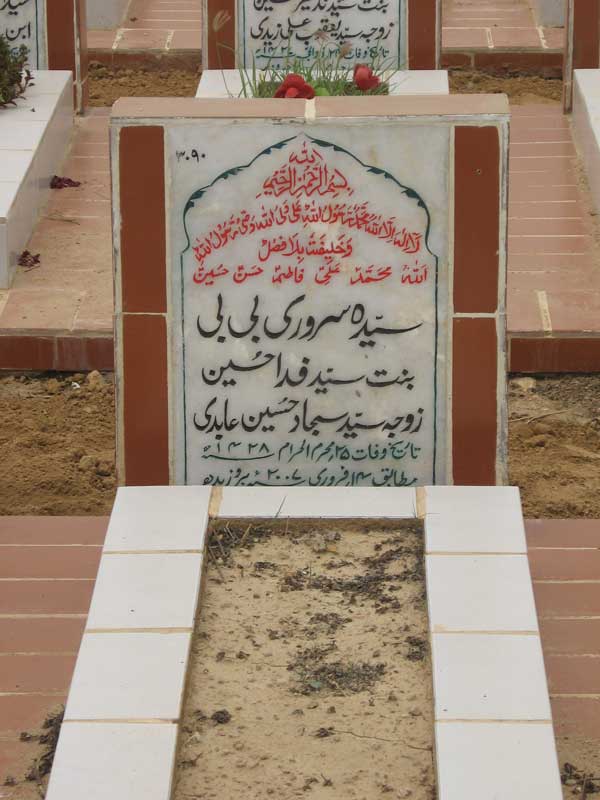 بنت سید
زوجہ سید یعقوب علی زیدی
۳۰۹۰
اللہ
بسم اللہ الرحمن الرحیم
لا الہ الا اللہ محمد رسول اللہ علی ولی اللہ وصی رسول اللہ
وخلیفتہ بلا فصل
اللہ محمدؐ علیؑ فاطمہؑ حسنؑ حسینؑ
سیّدہ سروری بی بی
بنت سیّد فدا حُسین
زوجہ سیّد سجاد حُسین عابدی
تاریخ وفات ۲۵ محرم الحرام ۱۴۲۸ھ
مطابق ۱۴ فروری ۲۰۰۷ء بروز بدھ